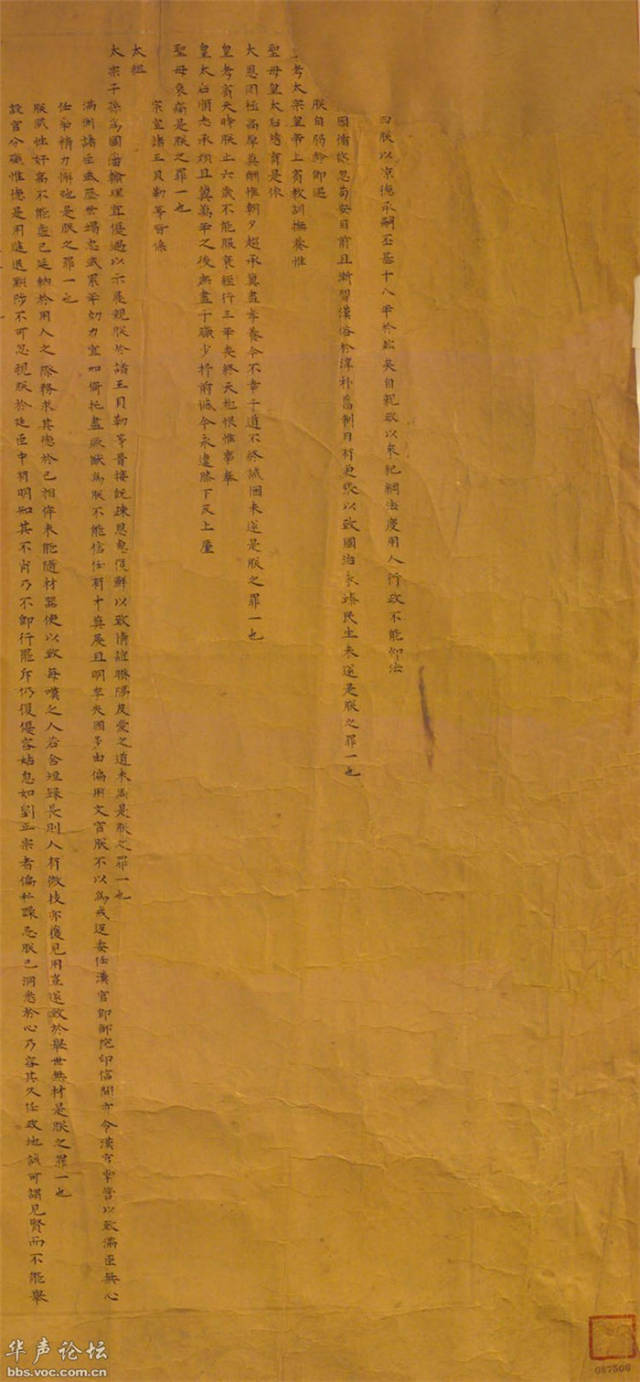 曰朕以涼德承嗣丕基十八年於玆矣自親政以來紀綱法度用人行政不能仰法
因循悠忽苟安目前且漸習漢俗於淳朴舊制日有更張以致國治未臻民生未遂是朕之罪一也
朕自弱齡卽遇
皇考太宗皇帝上賓教訓撫養惟
聖母皇太后慈育是依
大恩罔極高厚莫酬惟朝夕趨承冀盡孝養今不幸子道不終誠悃未遂是朕之罪一也
皇考賓天時朕止六歲不能服衰絰行三年喪終天抱恨惟事奉
皇太后順志承顏且冀萬年之後庶盡子職少抒前憾今永違膝下反上廑
聖母哀痛是朕之罪一也
宗室諸王貝勒等皆係
太祖
太宗子孫為國藩翰理宜優遇以示展親朕於諸王貝勒等晉接旣疎恩惠復鮮以致情誼睽隔友愛之道未周是朕之罪一也
滿洲諸臣或歷世竭忠或累年効力宜加倚托盡厥猷為朕不能信任有才莫展且明季失國多由偏用文官朕不以為戒返委任漢官卽部院印信間亦令漢官掌管以致滿臣無心
任事精力懈弛是朕之罪一也
朕夙性好高不能虛己延納於用人之際務求其德於己相侔未能隨材器使以致每嘆乏人若舍短錄長則人有微技亦獲見用豈遂致於舉世無材是朕之罪一也
設官分職惟德是用進退黜陟不可忽視朕於廷臣中有明知其不肖乃不卽行罷斥仍復優容姑息如劉正宗者偏私躁忌朕已洞悉於心乃容其久任政地誠可謂見賢而不能舉
华声论坛
bbs.voc.com.cn
087506